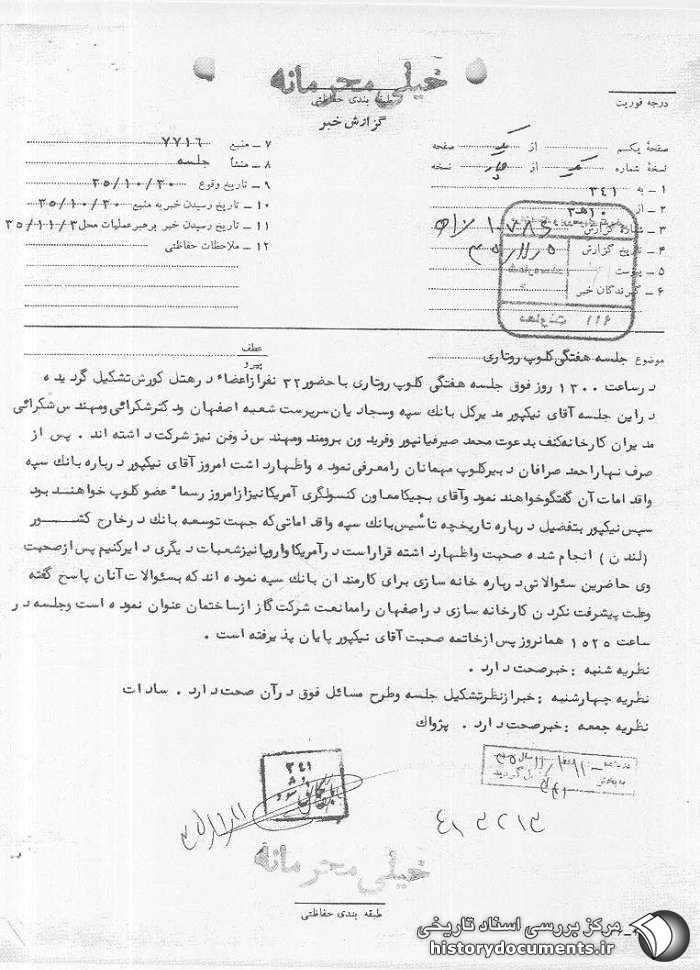 خیلی محرمانه
طبقه بندی حفاظتی
گزارش خبر
درجه فوریت
صفحهٔ یکم از یک صفحه
نسخهٔ شماره یک از چهار نسخه
۱ ـ به ۳۴۱
۲ ـ از ۱۰هـ۳
۳ ـ شماره گزارش
۴ ـ تاریخ گزارش
۵ ـ پیوست
۶ ـ گیرندگان خبر
۷ ـ منبع ۷۷۱۶
۸ ـ منشأ جلسه
۹ ـ تاریخ وقوع ۳۵/۱۰/۲۰
۱۰ ـ تاریخ رسیدن خبر به منبع ۳۵/۱۰/۲۰
۱۱ ـ تاریخ رسیدن خبر برهبر عملیات محل ۳۵/۱۱/۳
۱۲ ـ ملاحظات حفاظتی
موضوع جلسه هفتگی کلوپ روتاری
عطف
پیرو
در ساعت ۱۳۰۰ روز فوق جلسه هفتگی کلوپ روتاری با حضور ۳۲ نفر از اعضاء در هتل کورش تشکیل گردیده
در این جلسه آقای نیکپور مدیر کل بانک سپه وسجادیان سرپرست شعبه اصفهان ودکتر شکرائی ومهندس شکرائی
مدیران کارخانه کنف بدعوت محمد صیرفیانپور وفریدون برومند ومهندس ذوفن نیز شرکت داشته اند . پس از
صرف نهار احمد صرافان دبیر کلوپ مهمانان را معرفی نموده واظهار داشت امروز آقای نیکپور درباره بانک سپه
واقدامات آن گفتگو خواهند نمود وآقای بجیکا معاون کنسولگری آمریکا نیز از امروز رسماً عضو کلوپ خواهند بود
سپس نیکپور بتفضیل درباره تاریخچه تأسیس بانک سپه واقداماتی که جهت توسعه بانک در خارج کشور
(لندن) انجام شده صحبت واظهار داشته قرار است در آمریکا واروپا نیز شعبات دیگری دایر کنیم پس از صحبت
وی حاضرین سئوالاتی درباره خانه سازی برای کارمندان بانک سپه نموده اند که بسئوالات آنان پاسخ گفته
وعلت پیشرفت نکردن کارخانه سازی در اصفهان را ممانعت شرکت گاز از ساختمان عنوان نموده است وجلسه در
ساعت ۱۵۲۵ همانروز پس از خاتمه صحبت آقای نیکپور پایان پذیرفته است .
نظریه شنبه : خبر صحت دارد .
نظریه چهارشنبه : خبر از نظر تشکیل جلسه وطرح مسائل فوق در آن صحت دارد . سادات
نظریه جمعه : خبر صحت دارد . پژواک
۳۴۱
۳۵/۱۱/۱۱
خیلی محرمانه
طبقه بندی حفاظتی
مرکز بررسی اسناد تاریخی
historydocuments.ir